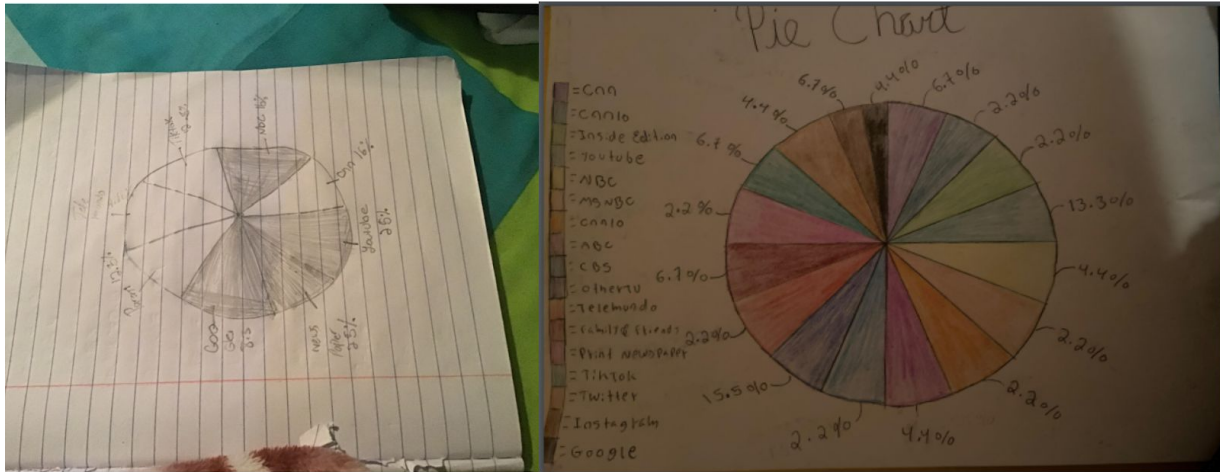 NBC 16%
CNN 16%
Youtube
25%
News
Paper
25%
Pie Chart
=Cnn
=Cnn10
=Inside Edition
=Youtube
=NBC
=MSNBC
=Cnn10
=ABC
=CBS
=OtherTV
=Telemundo
=Family & Friends
=Print Newspaper
=TikTok
=Twitter
=Instagram
=Google
4.4%
6.7%
2.2%
2.2%
13.3%
4.4%
2.2%
2.2%
4.4%
2.2%
15.5%
2.2%
6.7%
2.2%
6.7%
4.4%
6.7%